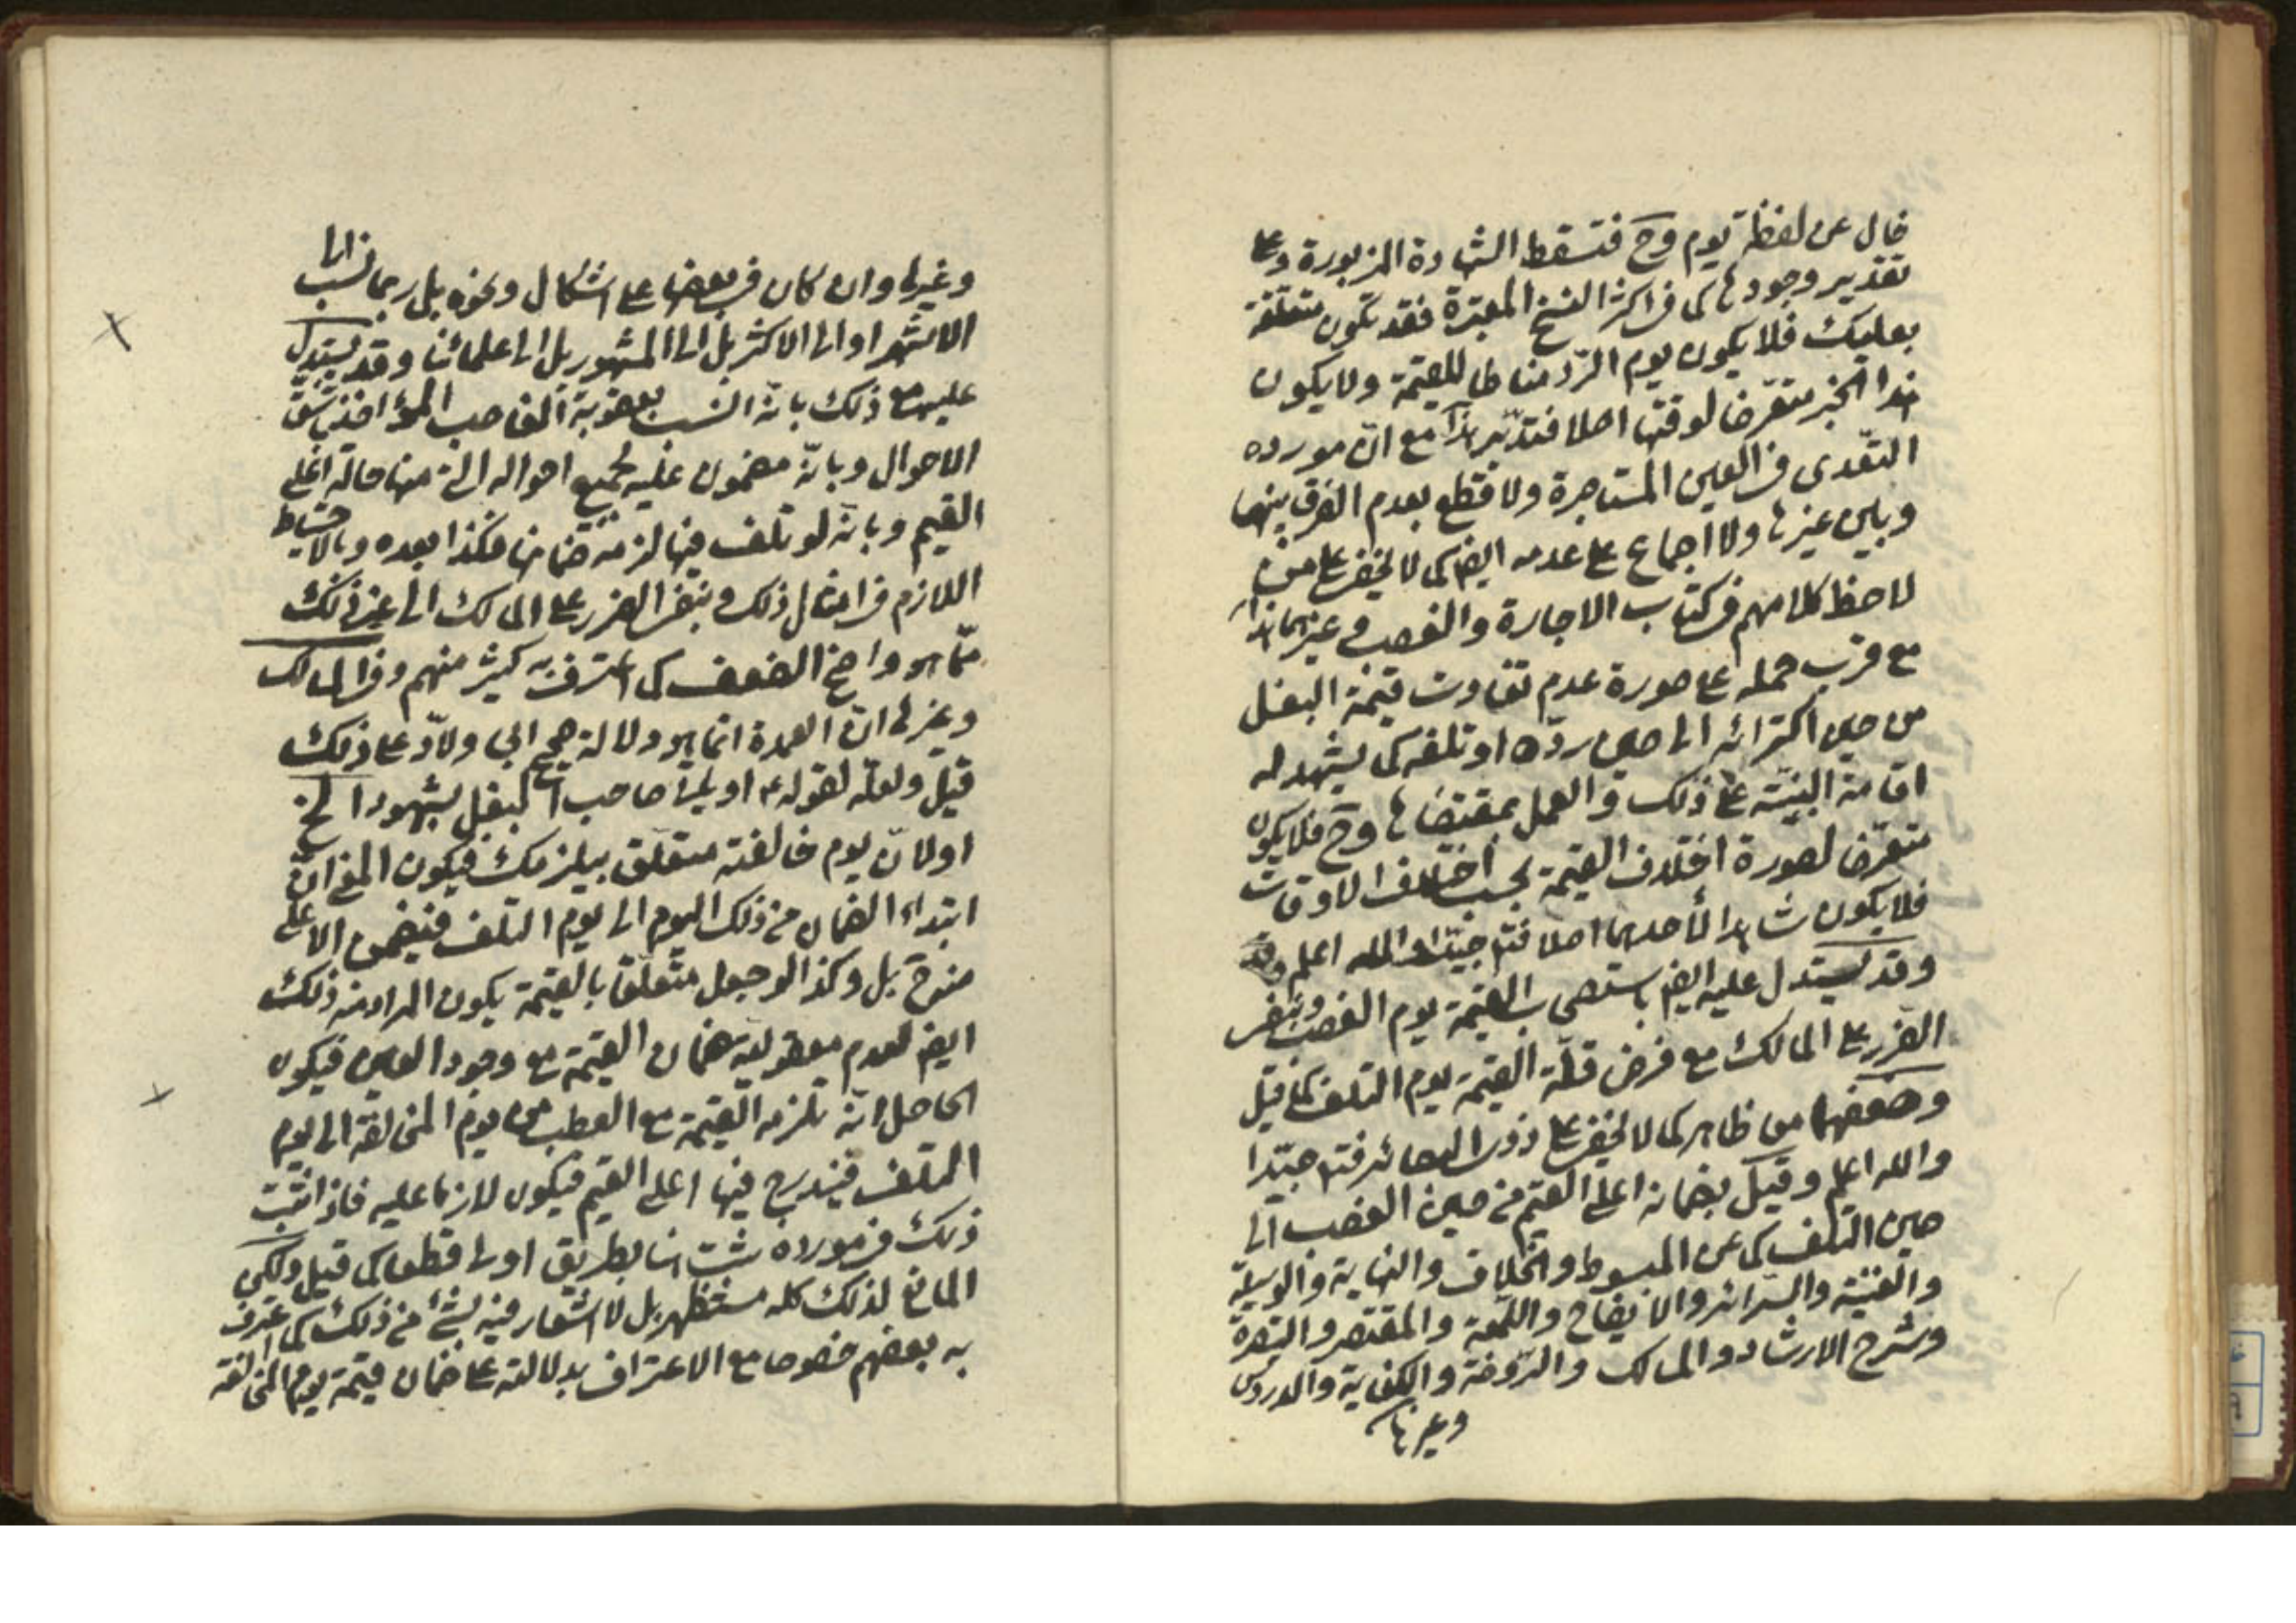 خال عن لفظة يوم وح فتسقط الشهادة المزبورة وعلى
تقدير وجودها كما في اكثر النسخ المعتبرة فقد تكون متعلقة
بعليك فلا يكون يوم الرّد مناطا للقيمة ولا يكون
هذا الخبر متعرضا لوقتها اصلا فتدبّر هذا مع انّ مورده
التعّدى في العين المستاجرة ولا قطع بعدم الفرق بينها
وبين غيرها ولا اجماع على عدمه ايضا كما لا يخفى على من
لاحظ كلامهم في كتاب الاجارة والغصب وغيرهما هذا
مع قرب حمله على صورة عدم تفاوت قيمة البغل
من حين اكترائه الى حين ردّه او تلفه كما يشهد له
اقامة البيّنة على ذلك والعمل بمقتضاها وح فلا يكون
متعرّضا لصورة اختلاف القيمة بحسب اختلاف الاوقات
فلا يكون شاهدا لأحدهما اصلا فتد جيّدا والله اعلم
وقد يستدل عليه ايضا باستصحاب القيمة يوم الغصب وبنفى
الضّرر على المالك مع فرض قلّة القيمة يوم التلف كما قيل
وضعفهما ظاهر كما لا يخفى على ذوى البصائر فتد جيّدا
والله اعلم وقيل بضمانه اعلى القيم من حين الغصب الى
حين التلف كما عن المبسوط والخلاف والنهاية والوسيلة
والغنية والسّرائر والايضاح واللّمعة والمقتصر والتبصرة
وشرح الارشاد والمسالك والرّوضة والكفاية والدروس
وغيرها
وغيرها وان كان في بعضها على اشكال ونحوه بل ربما نسب الى
الاشهر او الى الاكثر بل الى المشهور بل الى علمائنا وقد يستدل
عليه مع ذلك بانّه انسب بعقوبة الغاصب المؤاخذ باشقّ
الاحوال وبانّه مضمون عليه بجميع احواله التي منها حالة اعلى
القيم وبانّه لو تلف فيها لزمه ضمانها فكذا بعده وبالاحتياط
اللازم في امثال ذلك وبنفى الضرر على المالك الى غير ذلك
ممّا هو واضح الضعف كما اعترف به كثير منهم وفي المسالك
وغيرها انّ العمدة انّما هو دلالة صحيح ابي ولاّد على ذلك
قيل ولعلّه لقوله ع او يأتى صاحب البغل بشهود الخ
او لانّ يوم خالفته متعلّق بيلزمك فيكون المعنى انّ
ابتداء الضمان من ذلك اليوم الى يوم التلف فيضمن الاعلى
منه ح بل وكذا لو جعل متعلّقا بالقيمة يكون المراد منه ذلك
ايضا لعدم معقولية ضمان القيمة مع وجود العين فيكون
الحاصل انّه تلزمه القيمة مع العطب من يوم المخالفة الى يوم
التلف فيندرج فيها اعلى القيم فيكون لازما عليه فاذا ثبت
ذلك في مورده ثبت هنا بطريق اولى قطعا كما قيل ولكن
المانع لذلك كله مستظهر بل لا اشعار فيه بشئ من ذلك كما اعترف
به بعضهم خصوصا مع الاعتراف بدلالته على ضمان قيمة يوم المخالفة